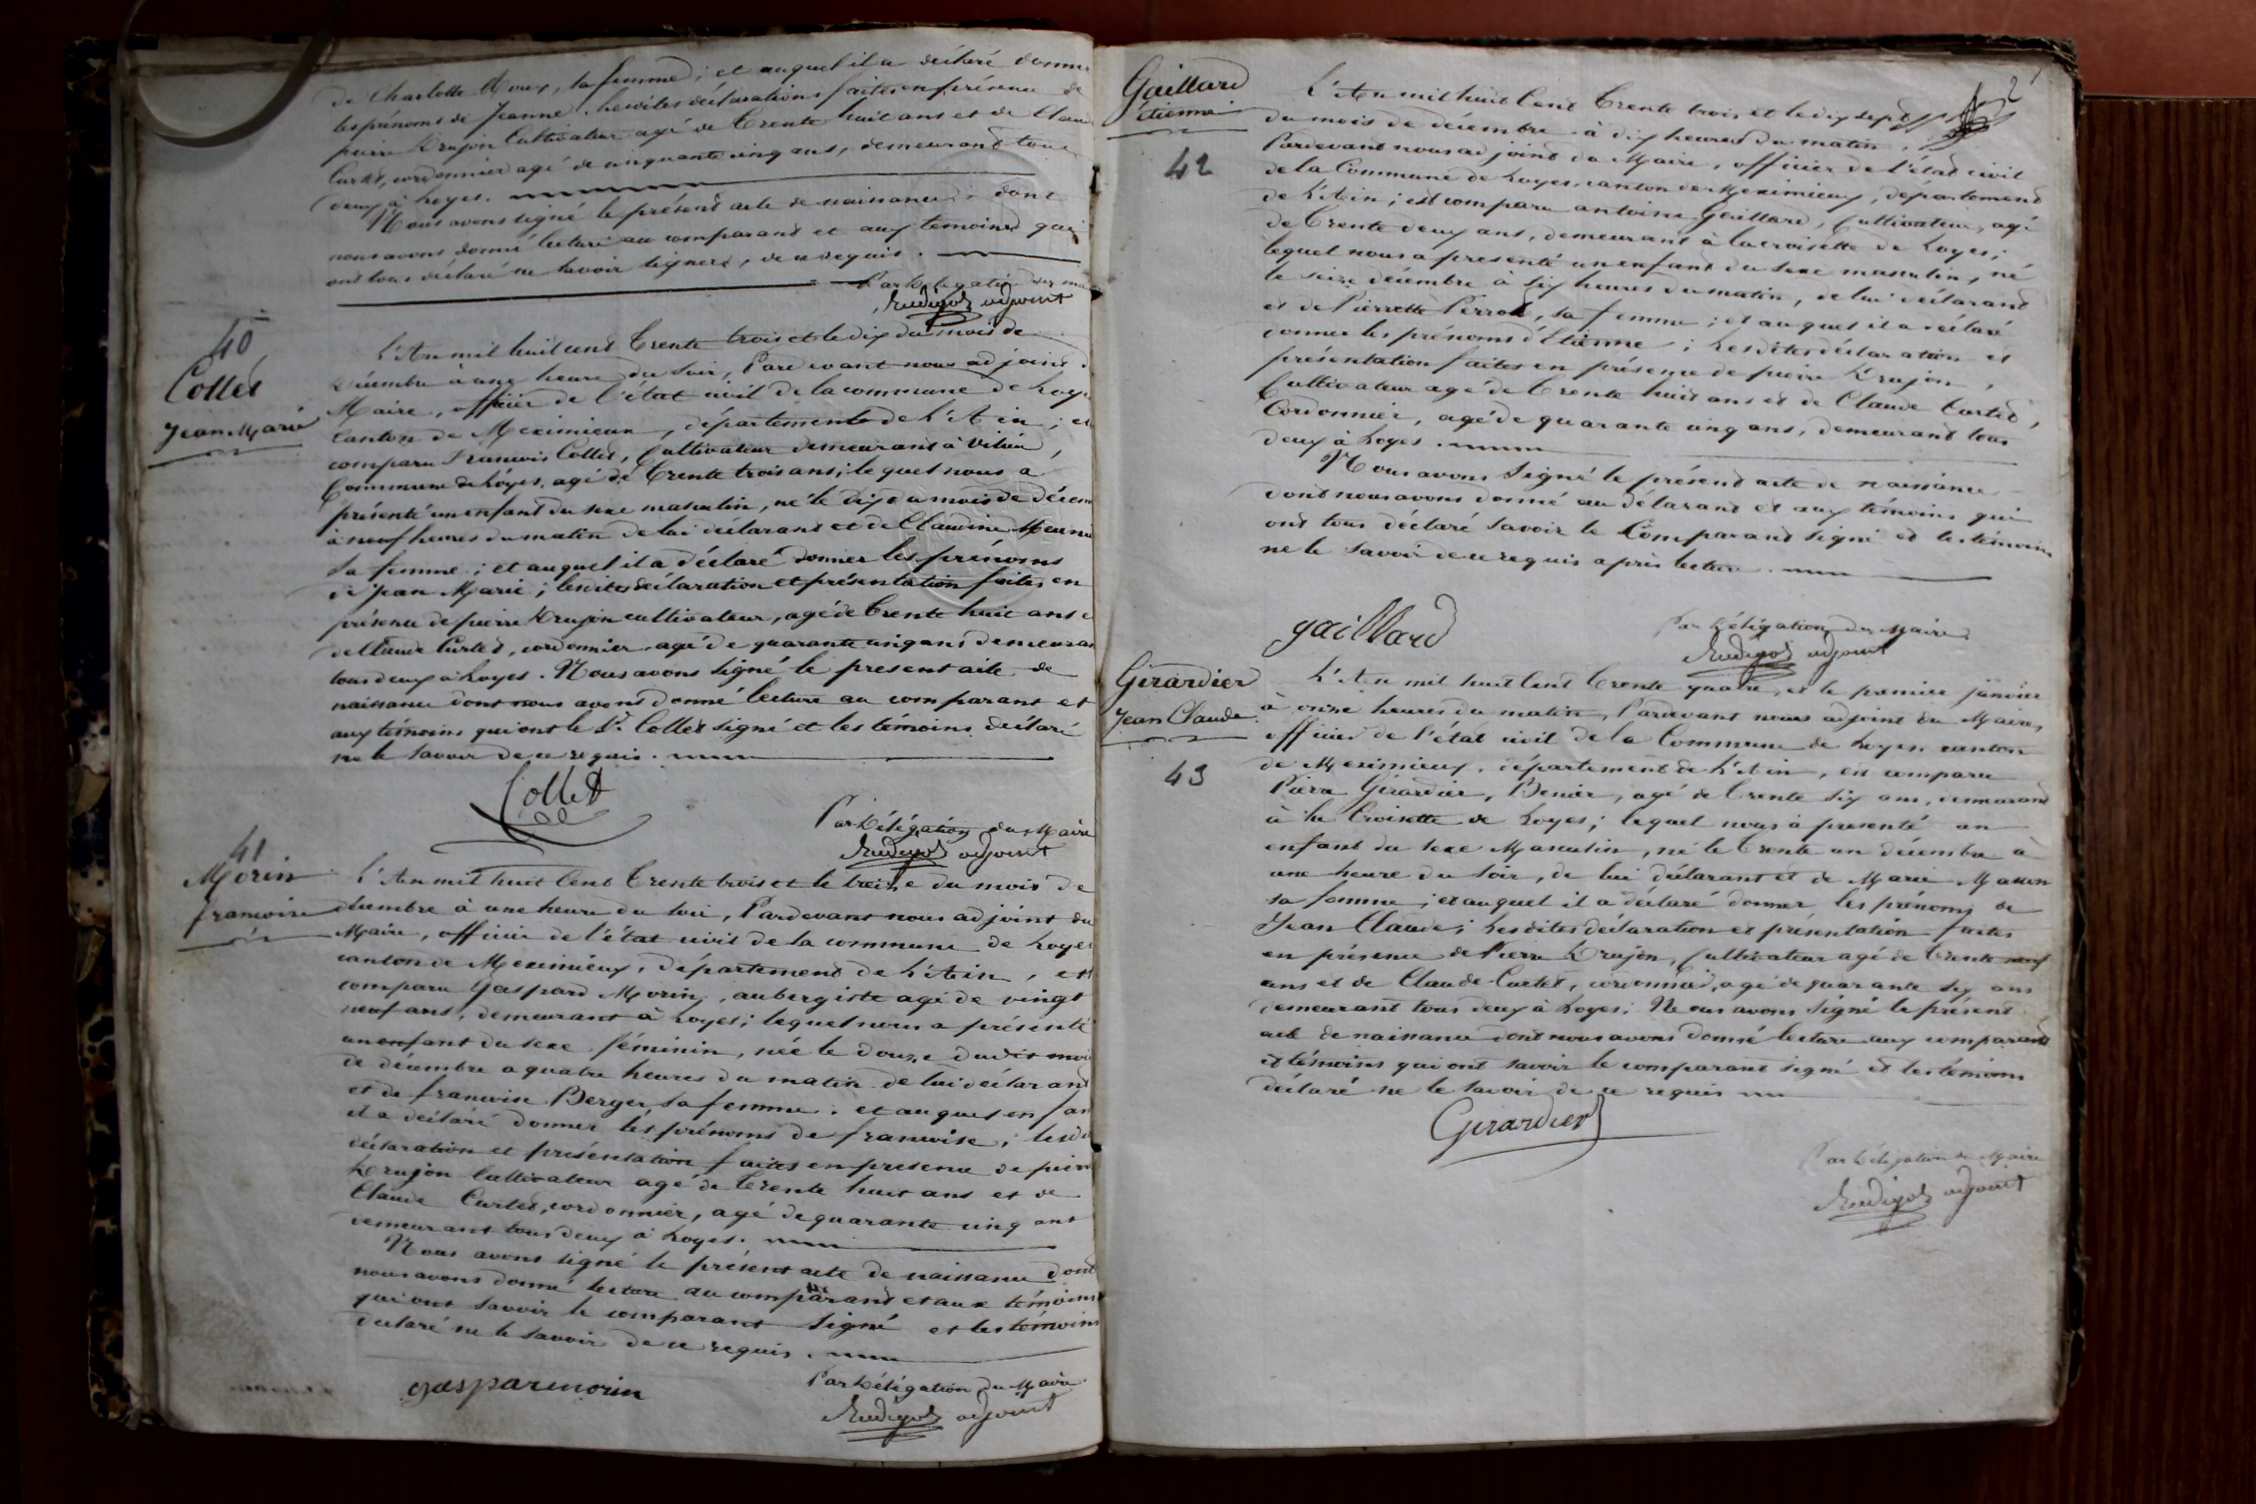 de Charlotte Roux, sa femme; et auquel il a déclaré donner
les prénoms de Jeanne. Lesdites déclarations faites en présence de
pierre Drujon Cultivateur agé de trente huit ans et de Clau
Curtet, cordonnier agé de cinquante cinq ans, demeurant tous
deux à Loyes.
Nous avons signé le présent acte de naissance dont
nous avons donné lecture au comparant et aux temoins qui
ont tous déclaré ne savoir signer, de ce requis.
Par Délégation du ma
adjoint
40
Collet
Jean Marie
L'An mil huit cent trente trois et le dix du mois de
Décembre à une heure du soir, Pardevant nous adjoint d
Maire, officier de l'état civil de la commune de Loye
Canton de Meximieux, département de L'Ain; es
comparu Francois Collet, Cultivateur demeurant à
Commune de Loyes, agé de trente trois ans; lequel nous a
présenté un enfant du sexe masculin, né le dix du mois de décem
à neuf heures du matin de lui déclarant et de Claudine Meunie
sa femme; et auquel il a déclaré donner les prénoms
de Jean Marie; lesdites déclaration et présentation faites en
présence de pierre Drujon cultivateur, agé de trente huit ans e
de Claude Curtet, cordonnier agé de quarante cinq ans demeuran
tous deux à Loyes. Nous avons signé le present acte de
naissance dont nous avons donné lecture au comparant et
aux témoins qui ont le Sr. Collet signé et les témoins déclaré
ne le savoir de ce requis.
Collet
Par Délégation du Maire
adjoint
41
Morin
francoise
L'An mil huit Cent trente trois et le treize du mois de
décembre à une heure du soir, Pardevant nous adjoint du
Maire, officier de l'état civil de la commune de Loyes
canton de Meximieux, département de L'Ain, est
comparu Gaspard Morin, aubergiste agé de vingt
neuf ans, demeurant à Loyes; lequel nous a présenté
un enfant du sexe féminin, née le douze dudit moi
de décembre a quatre heures du matin de lui déclarant
et de francoise Berger, sa femme. et auquel enfan
il a déclaré donner les prénoms de francoise; lesd
déclaration et présentation faites en presence de pierr
Drujon Cultivateur agé de trente huit ans et de
Claude Curtet, cordonnier, agé de quarante cinq ans
demeurant tous deux à Loyes.
Nous avons signé le présent acte de naissance dont
nous avons donné lecture au comparant et aux témoins
qui ont savoir le comparant signé et les témoins
déclaré ne le savoir de ce requis.
gasparmorin
Par Délégation du Maire
adjoint
Gaillard
étienne
42
2
L'An mil huit Cent trente trois et le dix sept
du mois de décembre à dix heures du matin,
Pardevant nous adjoint du Maire, officier de l'état civil
de la Commune de Loyes, canton de Meximieux, département
de L'Ain; est comparu antoine Gaillard, Cultivateur, agé
de trente deux ans, demeurant à la croisette de Loyes;
lequel nous a presenté un enfant du sexe masculin, né
le seize décembre à six heures du matin, de lui déclarant
et de Pierrette Perrod, sa femme; et auquel il a déclaré
donner les prénoms d'Etienne; Lesdites déclaration et
présentation faites en présence de pierre Drujon,
Cultivateur agé de trente huit ans et de Claude Curtet,
Cordonnier, agé de quarante cinq ans, demeurant tous
deux à Loyes.
Nous avons Signé le présent acte de naissance
dont nous avons donné au déclarant et aux témoins qui
ont tous déclaré savoir le Comparant signé et les témoins
ne le savoir de ce requis après lecture.
gaillard
Par Délégation du Maire
adjoint
Girardier
Jean Claude
43
L'An mil huit Cent trente quatre, et le premier janvier
à onze heures du matin, Pardevant nous adjoint du Maire,
officier de l'état civil de la Commune de Loyes canton
de Meximieux, département de L'Ain, est comparu
Pierre Girardier, agé de trente six ans, demeurant
à la Croisette de Loyes; lequel nous à presenté un
enfant du sexe Masculin, né le trente un décembre à
une heure du soir, de lui déclarant et de Marie
sa femme; et auquel il a déclaré donner les prénoms de
Jean Claude; Lesdites déclaration et présentation faites
en présence de Pierre Drujon, Cultivateur agé de trente neuf
ans et de Claude Curtet, cordonnier, agé de quarante six ans
demeurant tous deux à Loyes; Nous avons signé le présent
acte de naissance dont nous avons donné lecture aux comparant
et témoins qui ont savoir le comparant signé et les témoins
déclaré ne le savoir de ce requis
Girardier
Par Délégation du Maire
adjoint